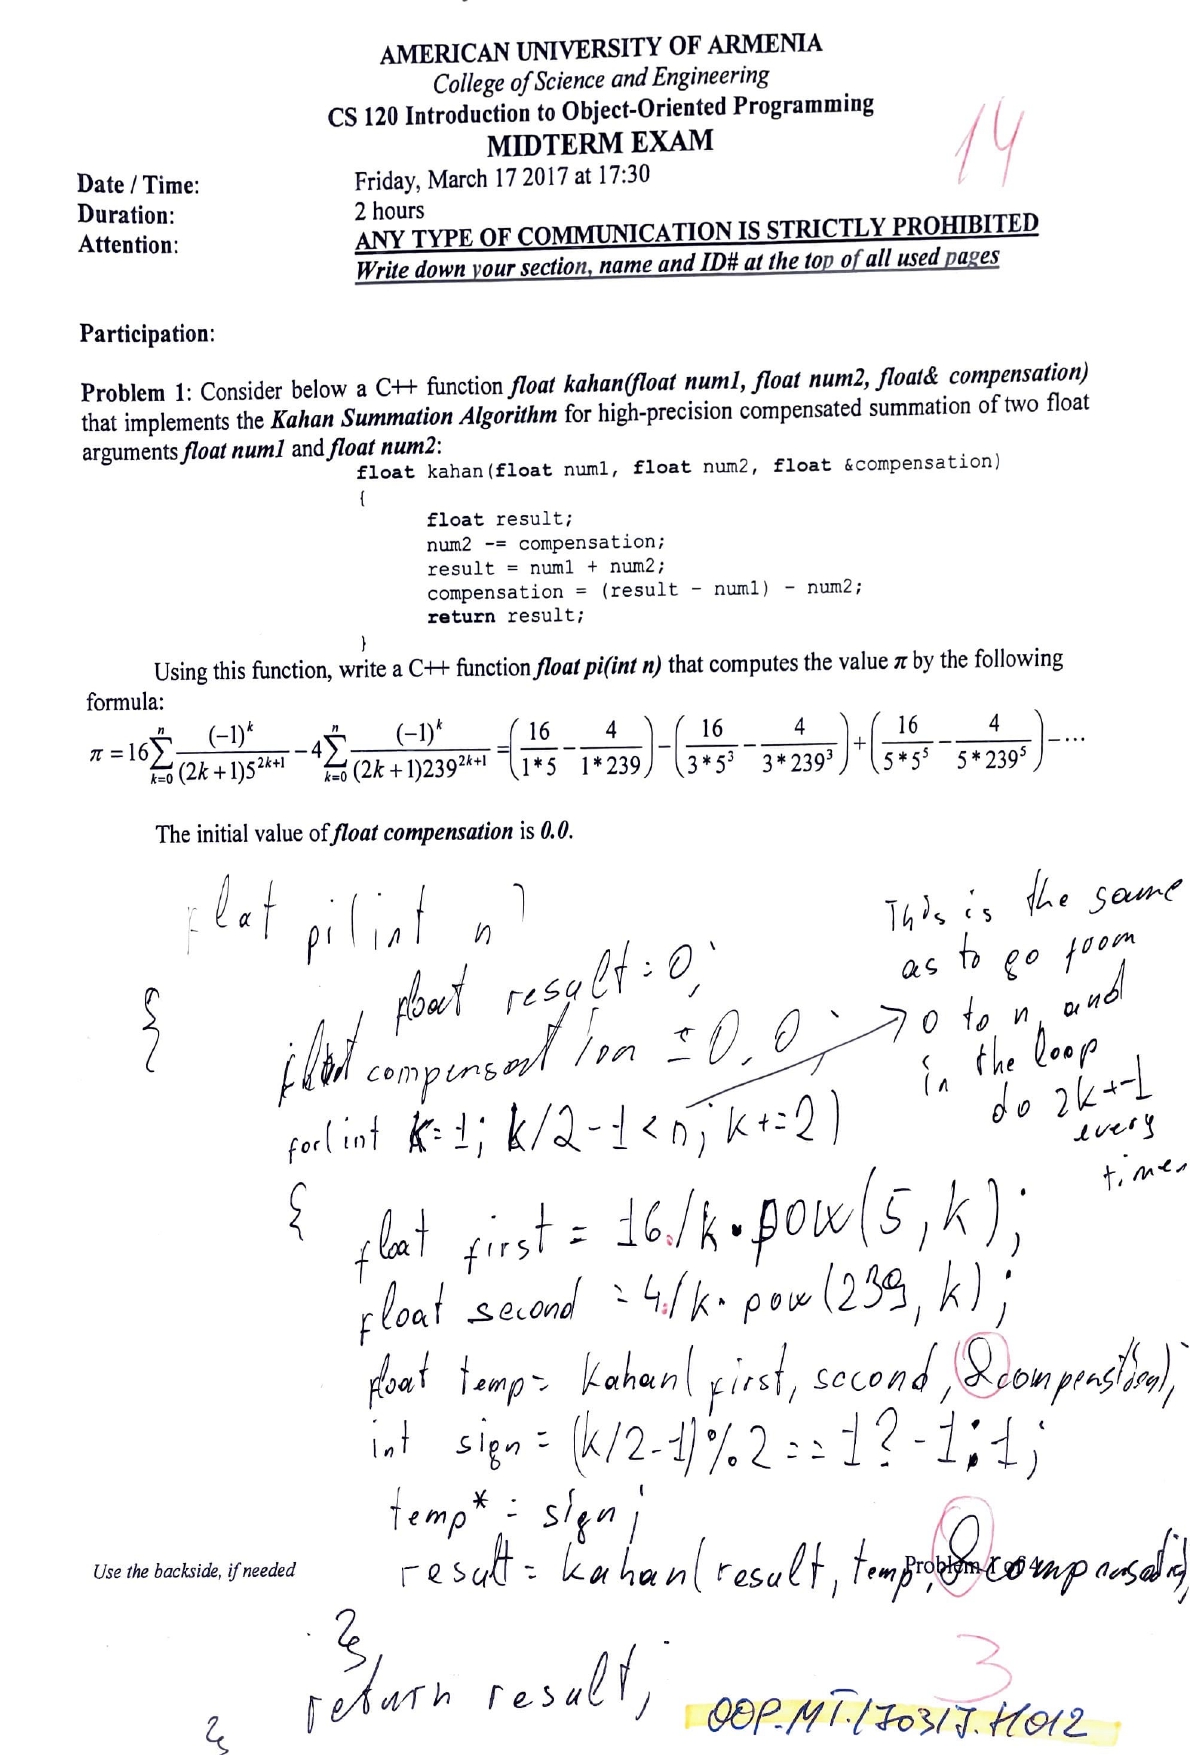 AMERICAN UNIVERSITY OF ARMENIA
College of Science and Engineering
CS 120 Introduction to Object-Oriented Programming
MIDTERM EXAM
14
Date / Time: Friday, March 17 2017 at 17:30
Duration: 2 hours
Attention: ANY TYPE OF COMMUNICATION IS STRICTLY PROHIBITED
Write down your section, name and ID# at the top of all used pages
Participation:
Problem 1: Consider below a C++ function float kahan(float num1, float num2, float& compensation)
that implements the Kahan Summation Algorithm for high-precision compensated summation of two float
arguments float num1 and float num2:
float kahan(float num1, float num2, float &compensation)
{
float result;
num2 -= compensation;
result = num1 + num2;
compensation = (result - num1) - num2;
return result;
}
Using this function, write a C++ function float pi(int n) that computes the value π by the following
formula:
π = 16 ∑_{k=0}^{n} (-1)^k / (2k+1)5^{2k+1} - 4 ∑_{k=0}^{n} (-1)^k / (2k+1)239^{2k+1} = (16/1*5 - 4/1*239) - (16/3*5^3 - 4/3*239^3) + (16/5*5^5 - 4/5*239^5) - ...
The initial value of float compensation is 0.0.
flat pi(int n)
{
float result = 0;
float compensation = 0.0;
for(int k=1; k/2-1<n; k+=2)
This is the same
as to go from
0 to n, and
in the loop
do 2k+1
every
time
{
float first = 16./k * pow(5, k);
float second = 4./k * pow(239, k);
float temp = kahan(first, second, &compensation);
int sign = (k/2-1)%2 == 1? -1:1;
temp* = sign;
result = kahan(result, temp, &compensation);
Use the backside, if needed
}
return result;
3
}
OOP.MT.